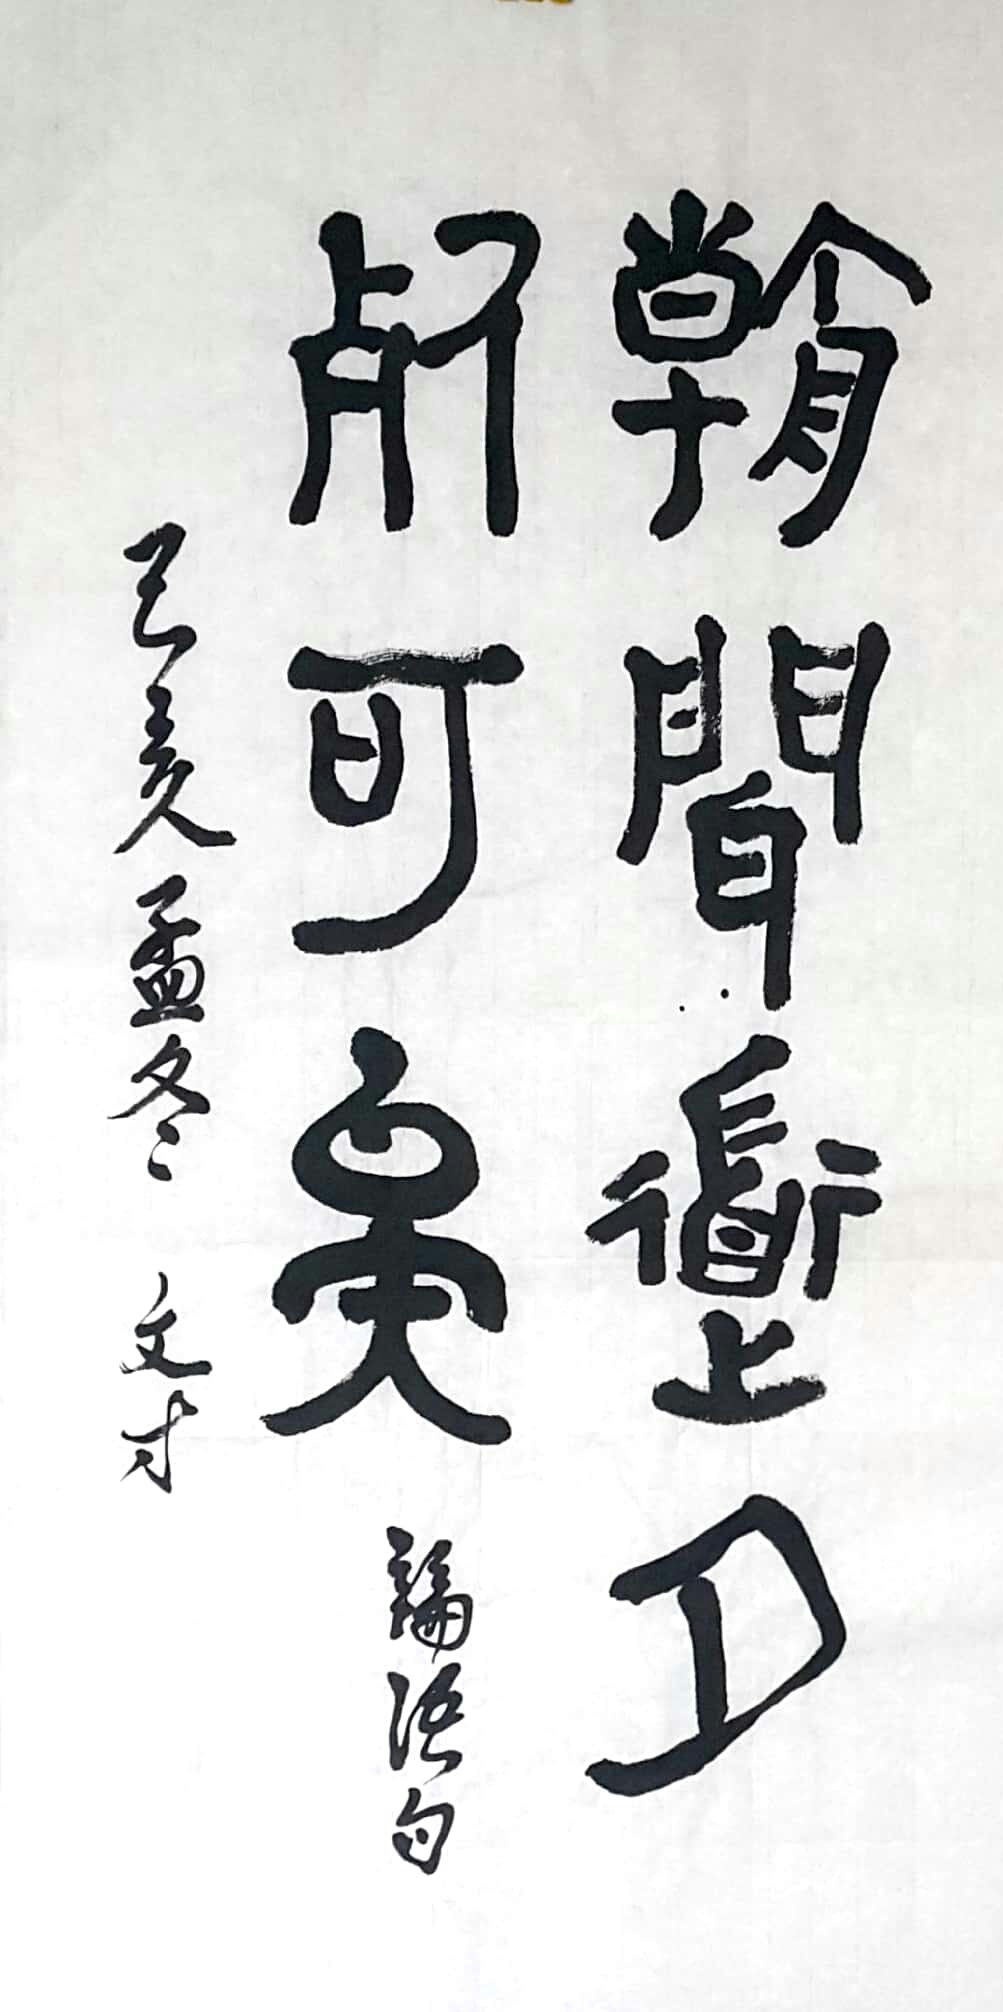 朝聞道夕
死可矣 論語句
己亥孟冬 文才